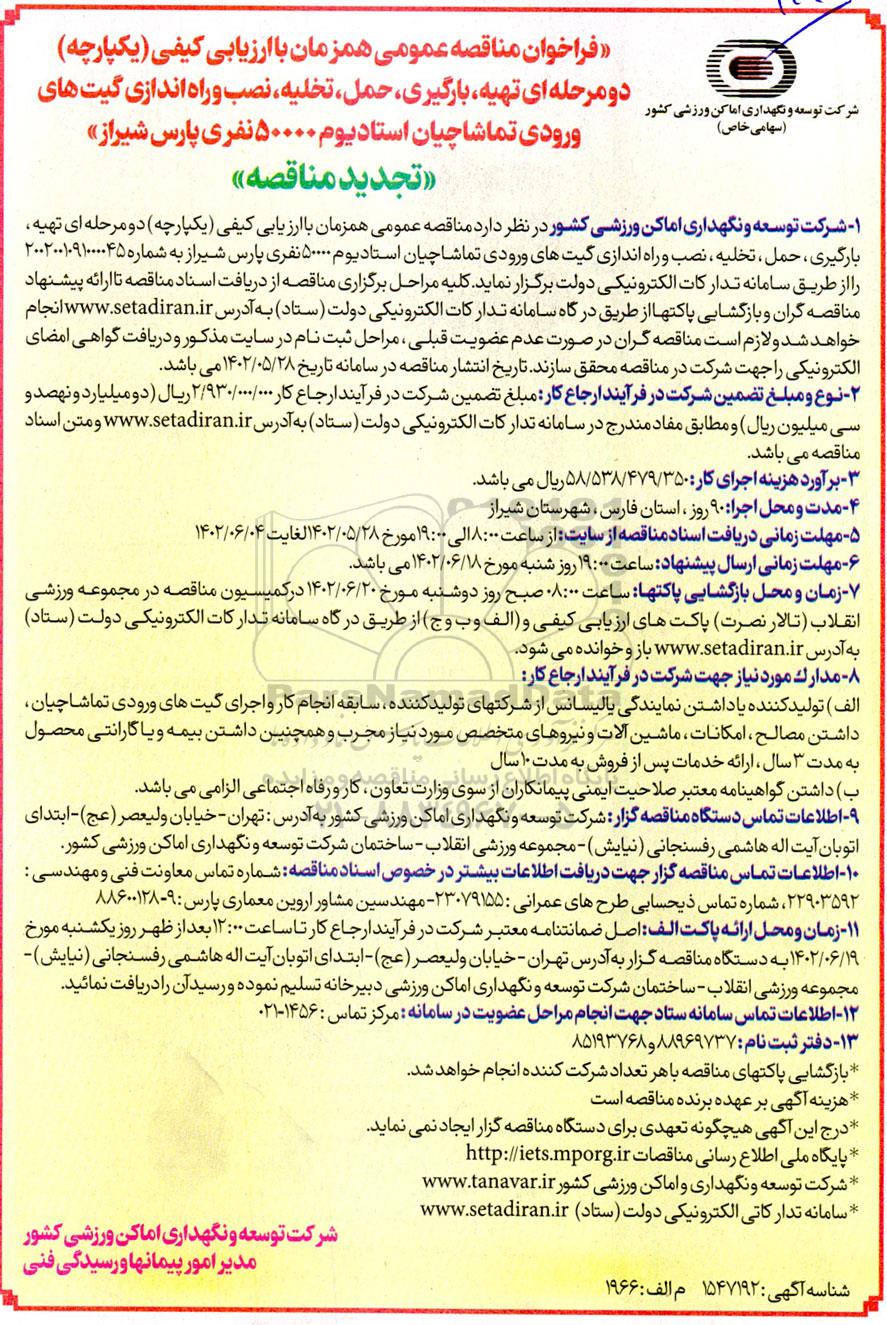 شرکت توسعه و نگهداری اماکن ورزشی کشور
(سهامی خاص)
«فراخوان مناقصه عمومی همزمان با ارزیابی کیفی (یکپارچه)
دو مرحله ای تهیه، بارگیری، حمل، تخلیه، نصب و راه اندازی گیت های
ورودی تماشاچیان استادیوم ۵۰۰۰۰ نفری پارس شیراز»
«تجدید مناقصه»
۱-شرکت توسعه و نگهداری اماکن ورزشی کشور در نظر دارد مناقصه عمومی همزمان با ارزیابی کیفی (یکپارچه) دو مرحله ای تهیه ،
بارگیری ، حمل ، تخلیه ، نصب و راه اندازی گیت های ورودی تماشاچیان استادیوم ۵۰۰۰۰ نفری پارس شیراز به شماره ۲۰۰۲۰۰۱۰۹۱۰۰۰۰۴۵
را از طریق سامانه تدارکات الکترونیکی دولت برگزار نماید.کلیه مراحل برگزاری مناقصه از دریافت اسناد مناقصه تا ارائه پیشنهاد
مناقصه گران و بازگشایی پاکتها از طریق درگاه سامانه تدارکات الکترونیکی دولت (ستاد) به آدرس www.setadiran.ir انجام
خواهد شد و لازم است مناقصه گران در صورت عدم عضویت قبلی ، مراحل ثبت نام در سایت مذکور و دریافت گواهی امضای
الکترونیکی را جهت شرکت در مناقصه محقق سازند.تاریخ انتشار مناقصه در سامانه تاریخ ۱۴۰۲/۰۵/۲۸ می باشد.
۲-نوع و مبلغ تضمین شرکت در فرآیند ارجاع کار: مبلغ تضمین شرکت در فرآیند ارجاع کار ۲/۹۳۰/۰۰۰/۰۰۰ ریال (دو میلیارد و نهصد و
سی میلیون ریال) و مطابق مفاد مندرج در سامانه تدارکات الکترونیکی دولت (ستاد) به آدرس www.setadiran.ir و متن اسناد
مناقصه می باشد.
۳-برآورد هزینه اجرای کار: ۵۸/۵۳۸/۴۷۹/۳۵۰ ریال می باشد.
۴-مدت و محل اجرا: ۹۰ روز ، استان فارس ، شهرستان شیراز
۵-مهلت زمانی دریافت اسناد مناقصه از سایت: از ساعت ۸:۰۰ الی ۱۹:۰۰ مورخ ۱۴۰۲/۰۵/۲۸ لغایت ۱۴۰۲/۰۶/۰۴
۶-مهلت زمانی ارسال پیشنهاد: ساعت ۱۹:۰۰ روز شنبه مورخ ۱۴۰۲/۰۶/۱۸ می باشد.
۷-زمان و محل بازگشایی پاکتها: ساعت ۰۸:۰۰ صبح روز دوشنبه مورخ ۱۴۰۲/۰۶/۲۰ در کمیسیون مناقصه در مجموعه ورزشی
انقلاب (تالار نصرت) پاکت های ارزیابی کیفی و (الف و ب و ج) از طریق درگاه سامانه تدارکات الکترونیکی دولت (ستاد)
به آدرس www.setadiran.ir باز و خوانده می شود.
۸-مدارک مورد نیاز جهت شرکت در فرآیند ارجاع کار:
الف) تولیدکننده یا داشتن نمایندگی یا لیسانس از شرکتهای تولیدکننده ، سابقه انجام کار و اجرای گیت های ورودی تماشاچیان ،
داشتن مصالح ، امکانات ، ماشین آلات و نیروهای متخصص مورد نیاز مجرب و همچنین داشتن بیمه و یا گارانتی محصول
به مدت ۳ سال ، ارائه خدمات پس از فروش به مدت ۱۰ سال
ب) داشتن گواهینامه معتبر صلاحیت ایمنی پیمانکاران از سوی وزارت تعاون ، کار و رفاه اجتماعی الزامی می باشد.
۹-اطلاعات تماس دستگاه مناقصه گزار: شرکت توسعه و نگهداری اماکن ورزشی کشور به آدرس : تهران-خیابان ولیعصر (عج)-ابتدای
اتوبان آیت اله هاشمی رفسنجانی (نیایش)-مجموعه ورزشی انقلاب-ساختمان شرکت توسعه و نگهداری اماکن ورزشی کشور.
۱۰-اطلاعات تماس مناقصه گزار جهت دریافت اطلاعات بیشتر در خصوص اسناد مناقصه: شماره تماس معاونت فنی و مهندسی :
۲۲۹۰۳۵۹۲، شماره تماس ذیحسابی طرح های عمرانی : ۲۳۰۷۹۱۵۵-مهندسین مشاور اروین معماری پارس : ۹-۸۸۶۰۰۱۲۸
۱۱-زمان و محل ارائه پاکت الف: اصل ضمانتنامه معتبر شرکت در فرآیند ارجاع کار تا ساعت ۱۲:۰۰ بعد از ظهر روز یکشنبه مورخ
۱۴۰۲/۰۶/۱۹ به دستگاه مناقصه گزار به آدرس تهران-خیابان ولیعصر (عج)-ابتدای اتوبان آیت اله هاشمی رفسنجانی (نیایش)-
مجموعه ورزشی انقلاب-ساختمان شرکت توسعه و نگهداری اماکن ورزشی دبیرخانه تسلیم نموده و رسید آن را دریافت نمائید.
۱۲-اطلاعات تماس سامانه ستاد جهت انجام مراحل عضویت در سامانه: مرکز تماس : ۱۴۵۶-۰۲۱
۱۳-دفتر ثبت نام: ۸۸۹۶۹۷۳۷ و ۸۵۱۹۳۷۶۸
*بازگشایی پاکتهای مناقصه با هر تعداد شرکت کننده انجام خواهد شد.
*هزینه آگهی بر عهده برنده مناقصه است
*درج این آگهی هیچگونه تعهدی برای دستگاه مناقصه گزار ایجاد نمی نماید.
*پایگاه ملی اطلاع رسانی مناقصات http://iets.mporg.ir
*شرکت توسعه و نگهداری و اماکن ورزشی کشور www.tanavar.ir
*سامانه تدارکاتی الکترونیکی دولت (ستاد) www.setadiran.ir
شرکت توسعه و نگهداری اماکن ورزشی کشور
مدیر امور پیمانها و رسیدگی فنی
شناسه آگهی : ۱۵۴۷۱۹۲ م الف : ۱۹۶۶
ParsNamadData
پایگاه اطلاع رسانی مناقصه و مزایده